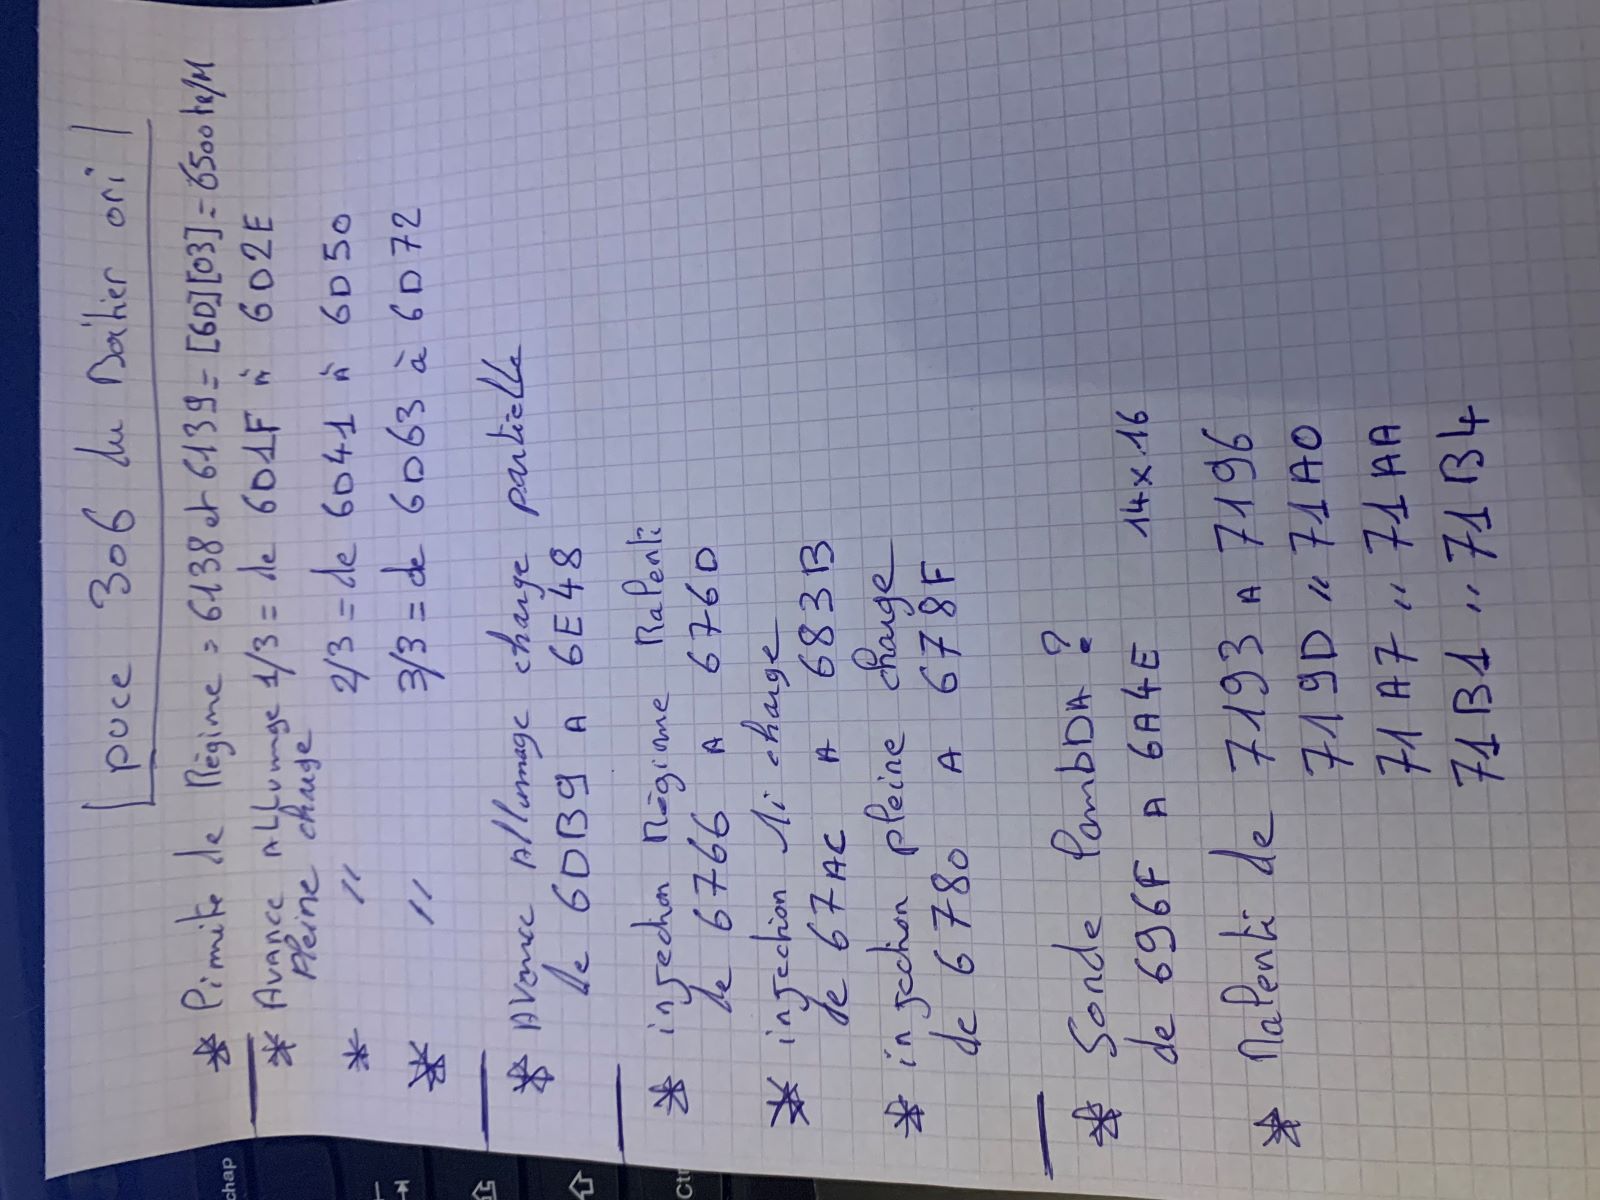 puce 306 du Boîtier ori
* Limite de Régime = 6138 et 6139 = [6D][03] = 6500 tr/M
* Avance ALLumage 1/3 = de 6D1F à 6D2E
Pleine charge
* " 2/3 = de 6D41 à 6D50
* " 3/3 = de 6D63 à 6D72
* AVance Allumage charge partielle
de 6DB9 A 6E48
* injection Régime RaLenti
de 6766 A 676D
* injection Mi charge
de 67AC A 683B
* injection pleine charge
de 6780 A 678F
* Sonde LambDA ?
de 696F A 6A4E 14x16
* RaLenti de 7193 A 7196
719D " 71A0
71A7 " 71AA
71B1 " 71B4
chap
Ct